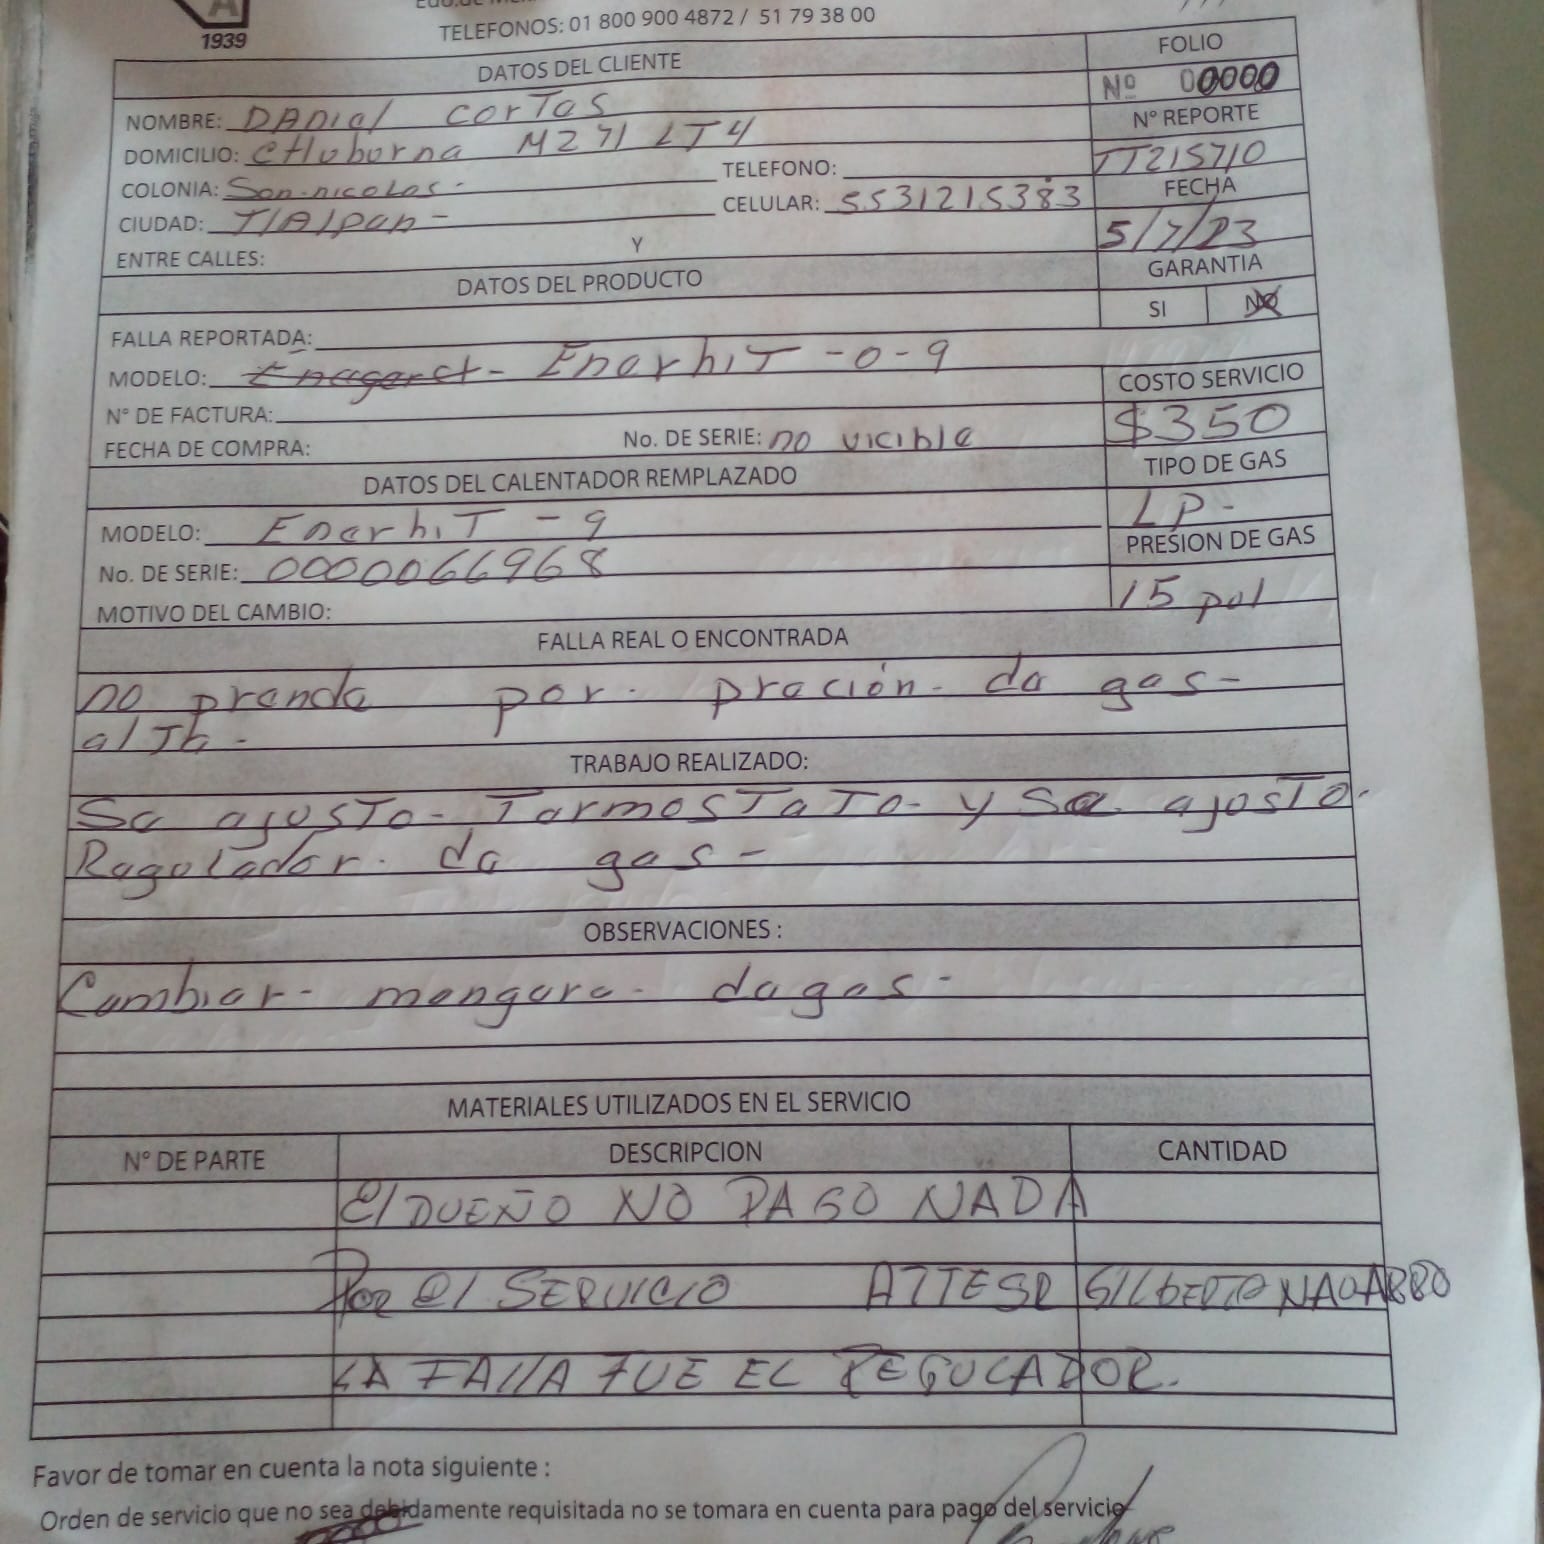 A
1939
TELEFONOS: 01 800 900 4872 / 51 79 38 00
DATOS DEL CLIENTE
FOLIO
Nº 00000
NOMBRE: DANial corTas
Nº REPORTE
DOMICILIO: MZ 71 LT4
TT215710
COLONIA: San.nicolas-
TELEFONO:
FECHA
CIUDAD: TlAlpan-
CELULAR: 5531215383
5/7/23
ENTRE CALLES: Y
GARANTIA
DATOS DEL PRODUCTO
SI NO
FALLA REPORTADA:
MODELO: EnarhiT-0-9
COSTO SERVICIO
N° DE FACTURA:
$350
FECHA DE COMPRA: No. DE SERIE: no vicible
TIPO DE GAS
DATOS DEL CALENTADOR REMPLAZADO
LP-
MODELO: EnarhiT-9
PRESION DE GAS
No. DE SERIE: 0000066968
15 pul
MOTIVO DEL CAMBIO:
FALLA REAL O ENCONTRADA
no prenda por. preción. da gas-
alTa-
TRABAJO REALIZADO:
Sa ajusTo- TarmosTaTo- y Sa. ajusTo.
Ragulador. da gas-
OBSERVACIONES :
Cambiar- mangara- da gas-
MATERIALES UTILIZADOS EN EL SERVICIO
N° DE PARTE DESCRIPCION CANTIDAD
El DUEÑO NO PAGO NADA
POR El SERVICIO GILBERTO
LA FAllA FUE EL REGULADOR.
Favor de tomar en cuenta la nota siguiente :
Orden de servicio que no sea debidamente requisitada no se tomara en cuenta para pago del servicio